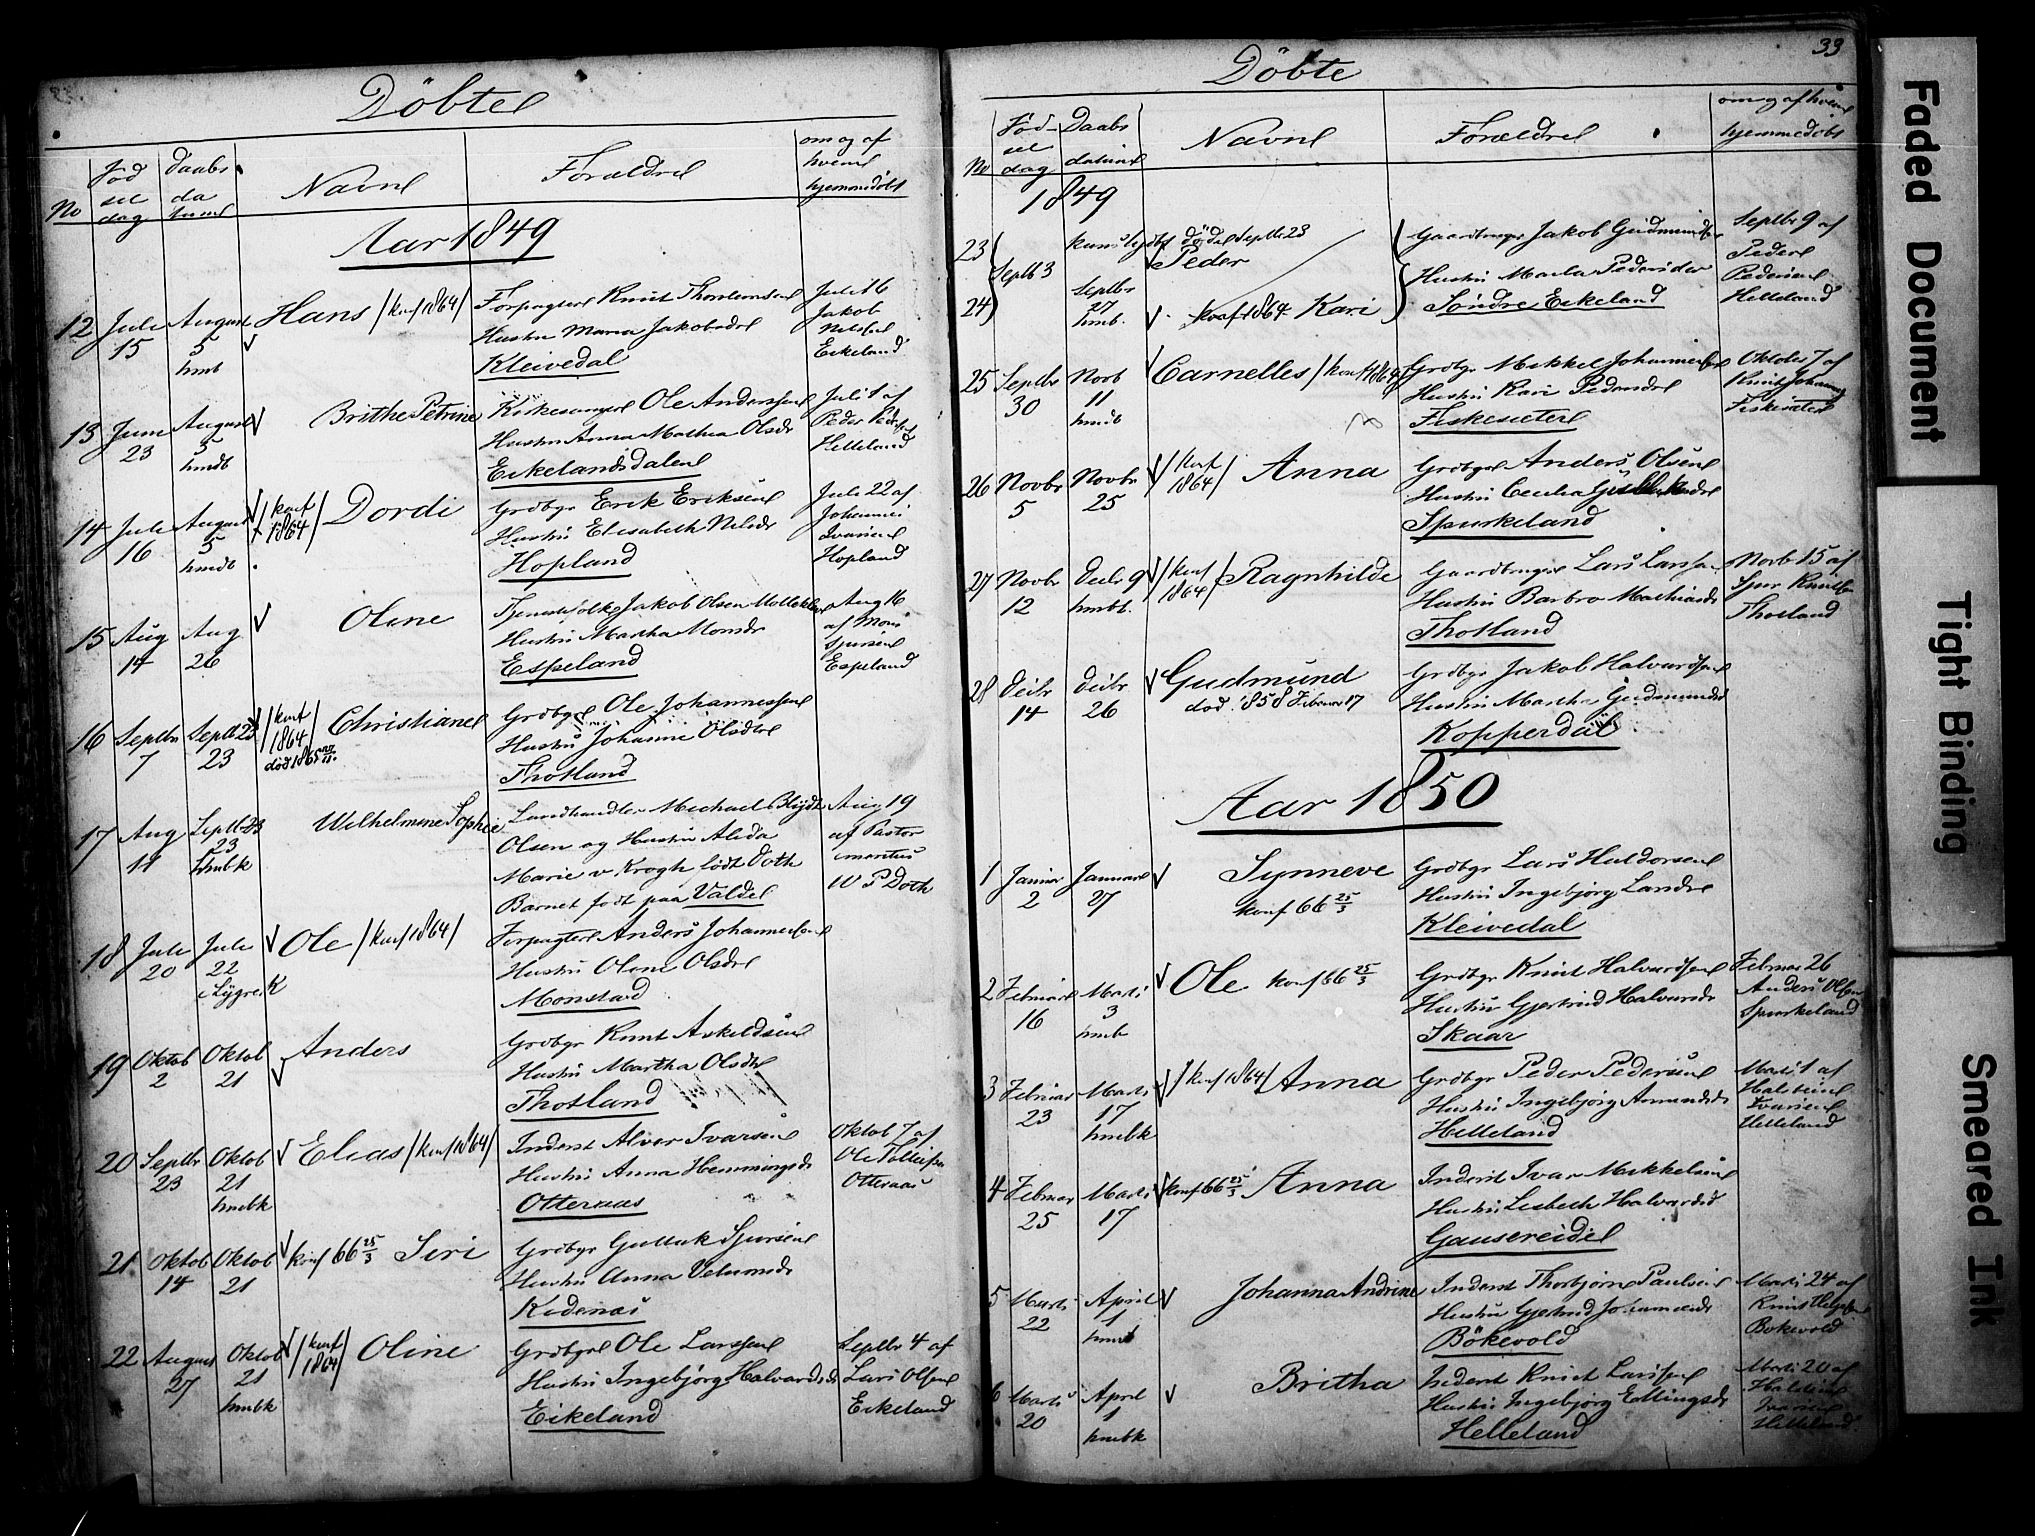 Döbte
No
Fød
sel
dag
Daabs
da
tum
Navne
Forældre
om og af
hvem
hjemmedøbt
Aar 1849
12 Juli 15 August 5 hmb Hans /konf 1864/
Forpagter Knut
Hustru Maria Jakobsdr
Kleivedal
Juli 16
Jakob
Nilssen
Eikeland
13 Juni 23 August 5 hmdb Brithe Petrine
Kirkesanger Ole Anderssen
Hustru Anna Mathea Olsdr
Eikelandsdalen
Juli 1 af
Peder
Helleland
14 Juli 16 August 5 hmdb /konf 1864/ Dordi
Grdbgr Erik Eriksen
Hustru Elisabeth Nilsdr
Hopland
Juli 22 af
Johannes
Ivarsen
Hopland
15 Aug 14 Aug 26 Oline
Tjenestfolk Jakob Olsen
Hustru Martha Monsdr
Espeland
Aug 16
af Mons
Sjursen
Espeland
16 Septbr 7 Septb 23 23 /konf 1864/ død 1865 Christiane
Grdbgr Ole Johannessen
Hustru Johanne Olsdr
Thotland
17 Aug 11 Septb 23 23 hmbk Wilhelmine Sophie
Landhandler Michael Blydt
Olsen og Hustru Alida
Marie v Krogh født Doth
Barnet født paa Valdel
Aug 19
af Pastor
emeritus
W P Doth
18 Juli 20 Juli 22 i Lygre K Ole /konf 1864/
Forpagter Anders Johannessen
Hustru Oline Olsdr
Monstad
19 Oktob 2 Oktob 21 Anders
Grdbgr Knut Askeldsen
Hustru Martha Olsdr
Thotland
20 Septbr 23 Oktob 21 hmbk Elias /konf 1864/
Inderst Alver Ivarsen
Hustru Anna Hemmingsdr
Otteraas
Oktob 7 af
Ole
Otteraas
21 Oktob 14 Oktob 21 konf 66 25/3 Siri
Grdbgr Gulluk Sjursen
Hustru Anna
Kidenæs
22 August 27 Oktob 21 hmbk /konf 1864/ Oline
Grdbgr Ole Larssen
Hustru Ingebjørg Halvardsdr
Eikeland
Septbr 4 af
Lars Olsen
Eikeland
33
Döbte
No
Fød-
sel
dag
Daabs
datum
Navne
Forældre
om og af hvem
hjemmedøbt
1849
23 Septb 3 døde Septbr 23
Peder
24 Septbr 27 hmb. konf 1864 Kari
Gaardbruger Jakob Gudmundsen
Hustru Marta Pedersdr
Søndre Eikeland
Septbr 9 af
Peder
Pedersen
Helleland
25 Septbr 30 Novb 11 hmdb Carnelles /konf 1864/
Grdbgr Mikkel Johannessen
Hustru Kari Pedersdr
Fiskesæter
Oktober 7 af
Knut Johannes
Fiskesæter
26 Novbr 5 Novbr 25 /konf 1864/ Anna
Grdbgr Anders Olsen
Hustru Cecilia
Spurkeland
27 Novbr 12 Decbr 9 hmbt. /konf 1864/ Ragnhilde
Gaardbruger Lars Larssen
Hustru Barbro Mathiasdr
Thotland
Novb 15 af
Sjur Knuts
Thotland
28 Decbr 14 Decbr 26 Gudmund
død 1858 Februar 17
Grdbgr Jakob Halvardsen
Hustru Martha Gudmundsdr
Kopperdal
Aar 1850
1 Januar 2 Januar 27 Synneve
konf 66 25/3
Grdbgr Lars Haldorsen
Hustru Ingebjørg Larsdr
Kleivedal
2 Februar 16 Marts 3 hmb Ole konf 66 25/3
Grdbgr Knut Halvardsen
Hustru Gjertrud Halvarsdr
Skaar
Februar 26
Anders Olsen
Spurkeland
3 Februar 23 Marts 17 hmbk /konf 1864/ Anna
Grdbgr Peder Pedersen
Hustru Ingebjørg Amundsdr
Helleland
Marts 1 af
Halstein
Ivarsen
Helleland
4 Februar 25 Marts 17 konf 66 25/3 Anna
Inderst Ivar Mikkelsen
Hustru Lisbeth Halvardsd
Gausereidet
5 Marts 22 April 1 Johanna Andrine
Inderst Thorbjørn Paulsen
Hustru Gjertrud
Bökevold
Marts 24 af
Knut
Bokevold
6 Marts 20 April 1 hmbk Britha
Inderst Knut Larssen
Hustru Ingebjørg Ellingsdr
Helleland
Marts 20 af
Halstein
Ivarsen
Helleland
Faded Document
Tight Binding
Smeared Ink